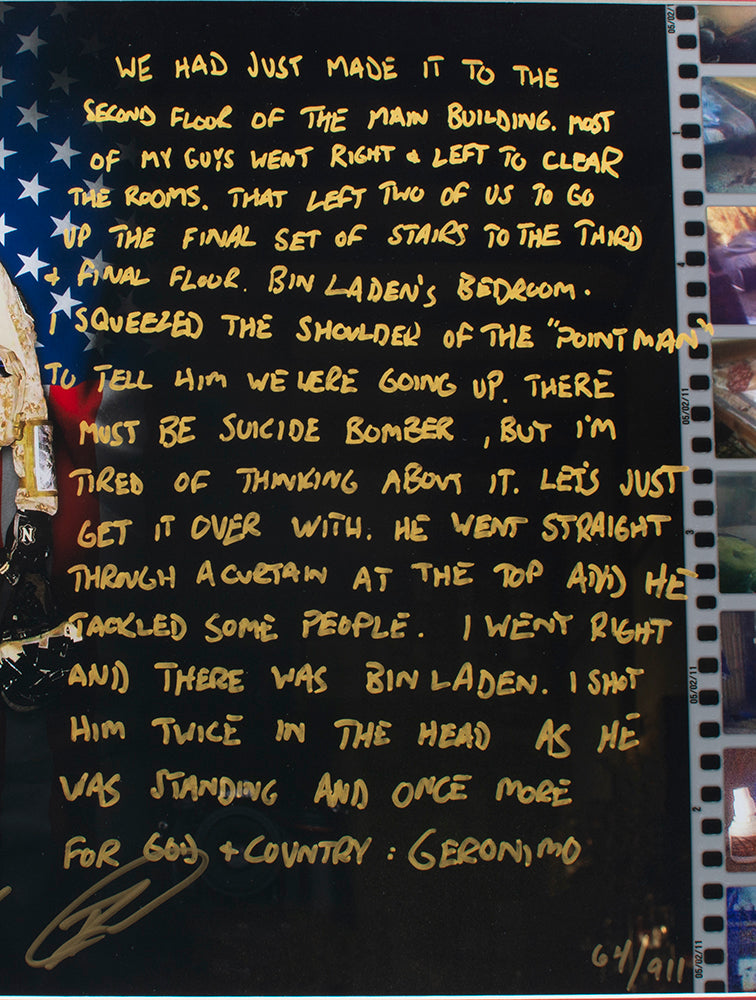 WE HAD JUST MADE IT TO THE
SECOND FLOOR OF THE MAIN BUILDING. MOST
OF MY GUYS WENT RIGHT & LEFT TO CLEAR
THE ROOMS. THAT LEFT TWO OF US TO GO
UP THE FINAL SET OF STAIRS TO THE THIRD
& FINAL FLOOR. BIN LADEN'S BEDROOM.
I SQUEEZED THE SHOULDER OF THE "POINT MAN"
TO TELL HIM WE WERE GOING UP. THERE
MUST BE SUICIDE BOMBER, BUT I'M
TIRED OF THINKING ABOUT IT. LET'S JUST
GET IT OVER WITH. HE WENT STRAIGHT
THROUGH A CURTAIN AT THE TOP AND HE
TACKLED SOME PEOPLE. I WENT RIGHT
AND THERE WAS BIN LADEN. I SHOT
HIM TWICE IN THE HEAD AS HE
WAS STANDING AND ONCE MORE
FOR GOD + COUNTRY : GERONIMO
64/911
05/02/11
1
4
05/02/11
3
05/02/11
2
05/02/11
N